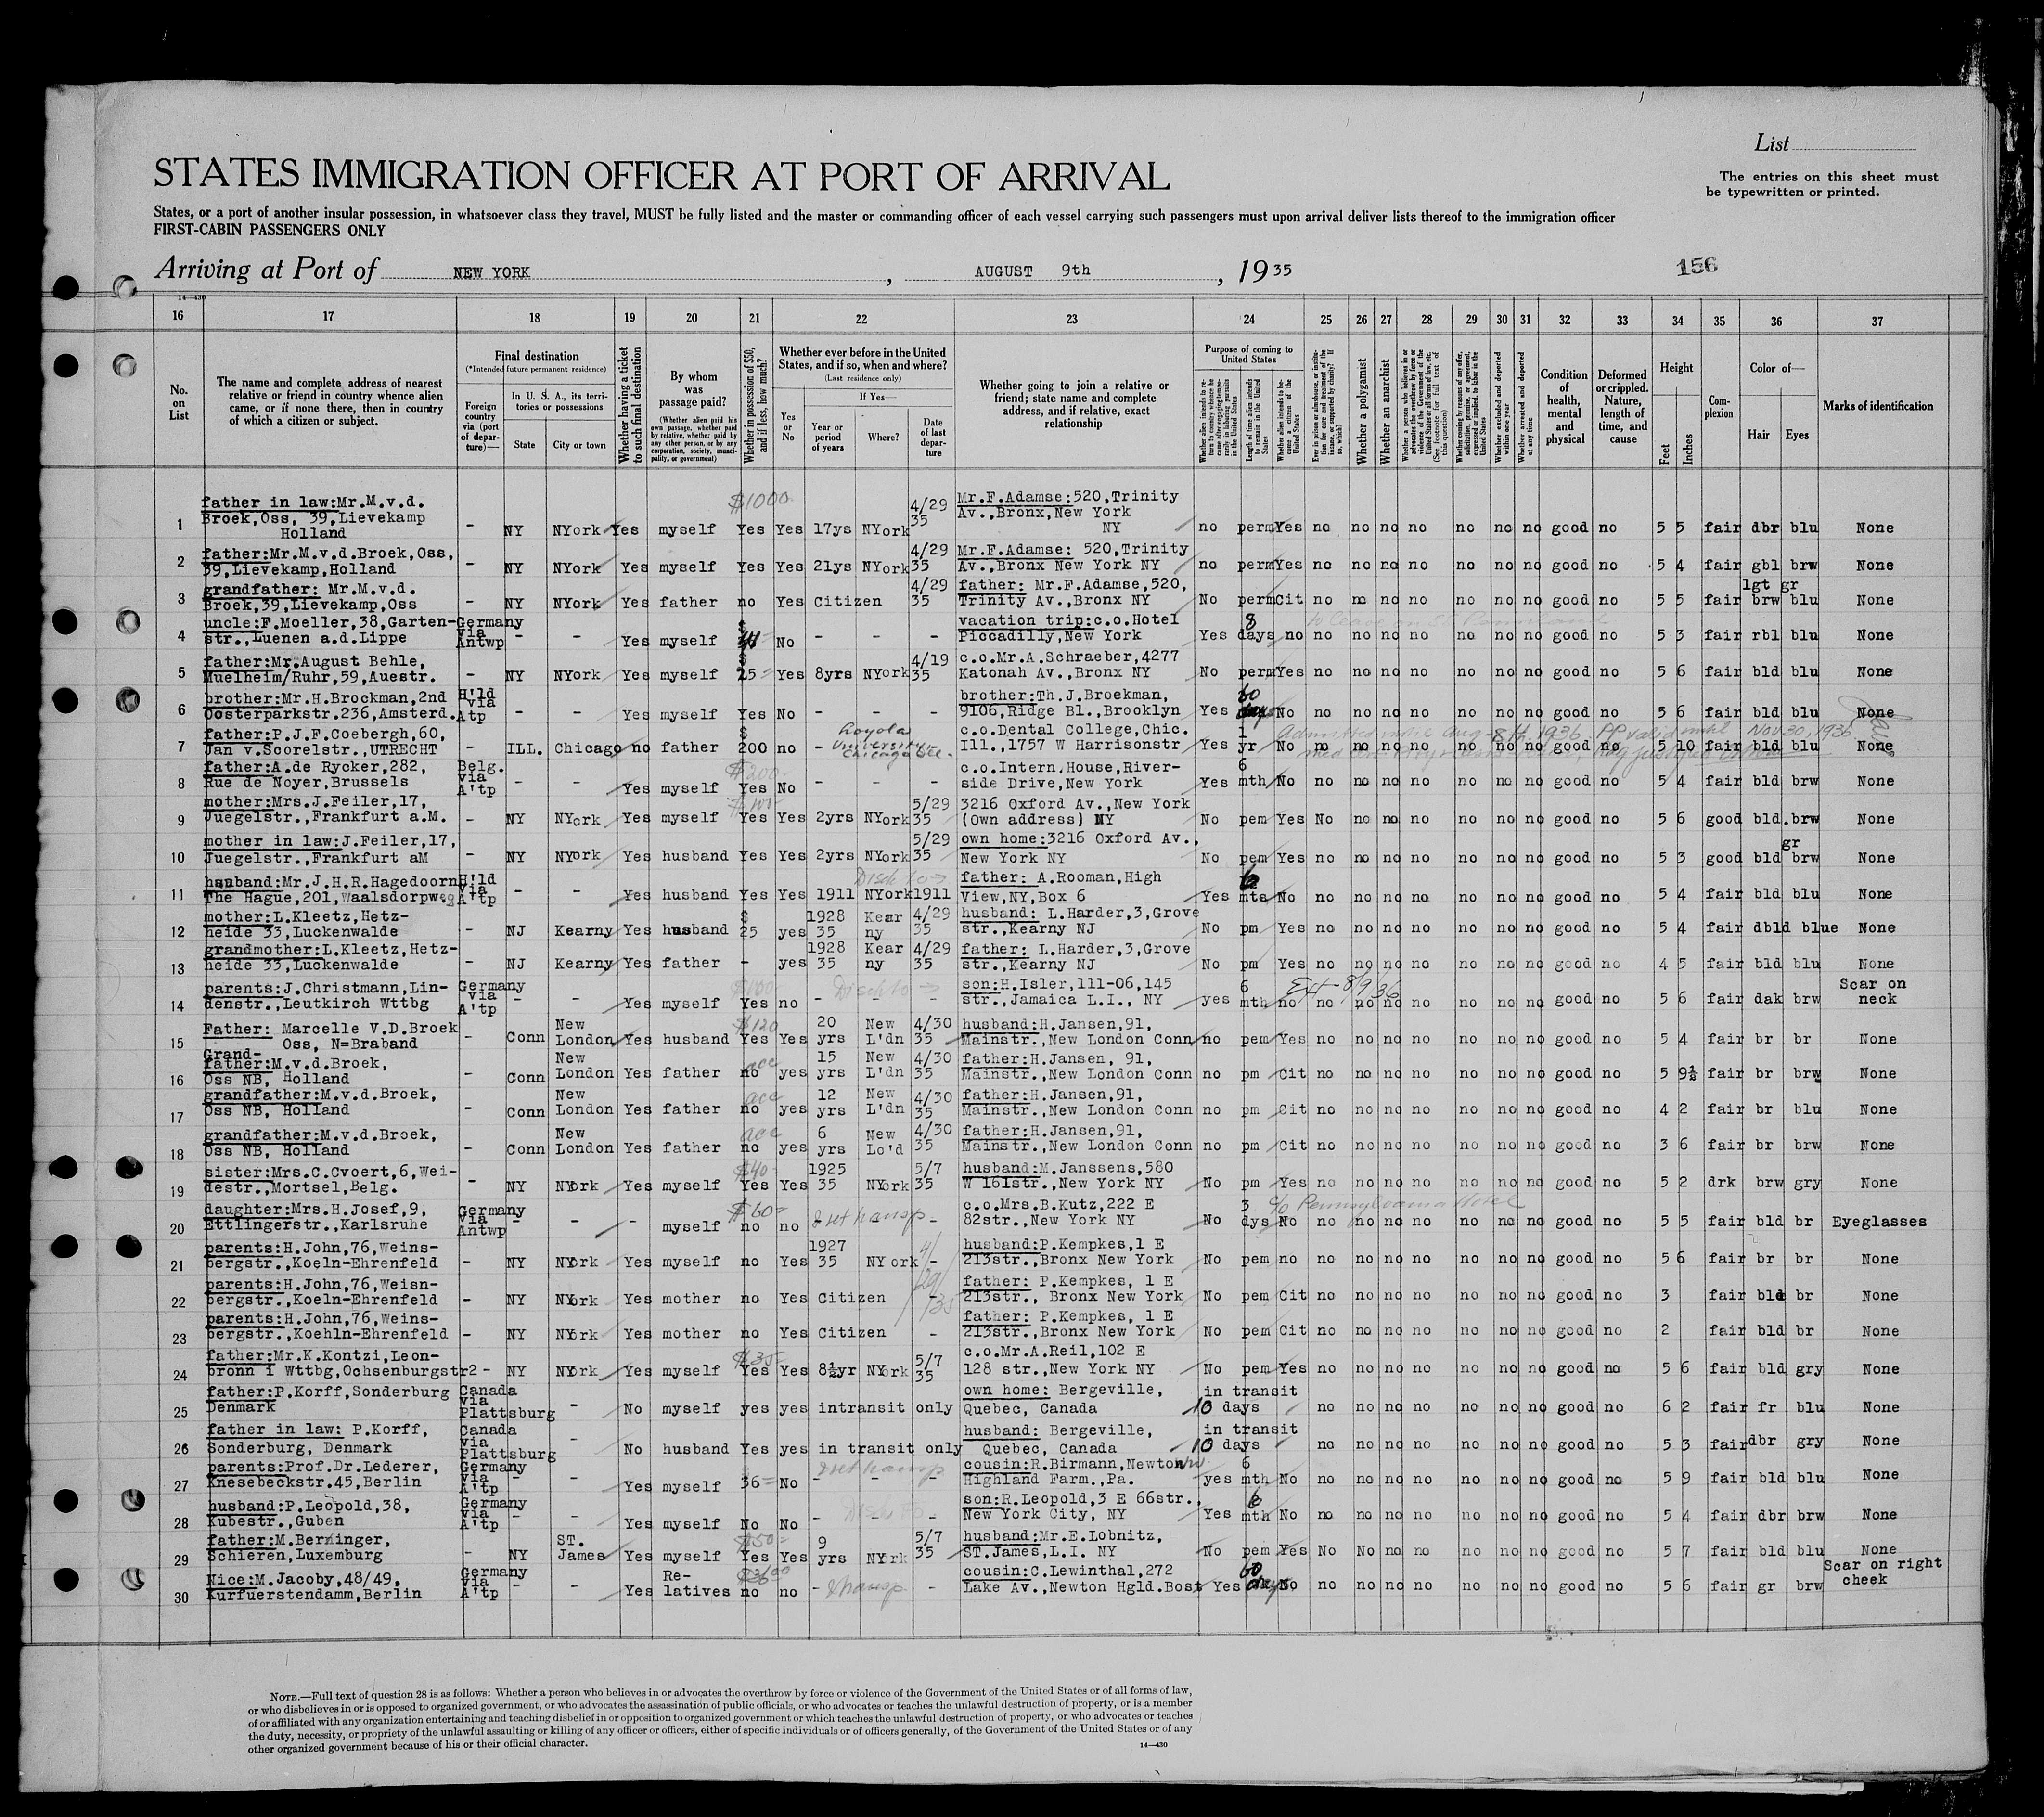 List
STATES IMMIGRATION OFFICER AT PORT OF ARRIVAL
The entries on this sheet must
be typewritten or printed.
States, or a port of another insular possession, in whatsoever class they travel, MUST be fully listed and the master or commanding officer of each vessel carrying such passengers must upon arrival deliver lists thereof to the immigration officer
FIRST-CABIN PASSENGERS ONLY
Arriving at Port of NEW YORK, AUGUST 9th, 1935
156
14—430
16 17 18 19 20 21 22 23 24 25 26 27 28 29 30 31 32 33 34 35 36 37
No. on List
The name and complete address of nearest relative or friend in country whence alien came, or if none there, then in country of which a citizen or subject.
Final destination
(*Intended future permanent residence)
Foreign country via (port of departure)—
In U. S. A., its territories or possessions
State
City or town
Whether having a ticket to such final destination
By whom was passage paid?
(Whether alien paid his own passage, whether paid by relative, whether paid by any other person, or by any corporation, society, municipality, or government)
Whether in possession of $50, and if less, how much?
Whether ever before in the United States, and if so, when and where?
(Last residence only)
Yes or No
If Yes—
Year or period of years
Where?
Date of last departure
Whether going to join a relative or friend; state name and complete address, and if relative, exact relationship
Purpose of coming to United States
Length of time alien intends to remain in the United States
Whether alien intends to become a citizen of the United States
Whether a polygamist
Whether an anarchist
Whether excluded and deported within one year
Whether arrested and deported at any time
Condition of health, mental and physical
Deformed or crippled. Nature, length of time, and cause
Height
Feet
Inches
Complexion
Color of—
Hair
Eyes
Marks of identification
1 father in law:Mr.M.v.d. Broek,Oss, 39,Lievekamp Holland - NY NYork Yes myself $1000 Yes Yes 17ys NYork 4/29 35 Mr.F.Adamse:520,Trinity Av.,Bronx,New York NY no perm Yes no no no no no no no good no 5 5 fair dbr blu None
2 father:Mr.M.v.d.Broek,Oss, 39,Lievekamp,Holland - NY NYork Yes myself Yes Yes 21ys NYork 4/29 35 Mr.F.Adamse: 520,Trinity Av.,Bronx New York NY no perm Yes no no no no no no no good no 5 4 fair gbl brw None
3 grandfather: Mr.M.v.d. Broek,39,Lievekamp,Oss - NY NYork Yes father no Yes Citizen 4/29 35 father: Mr.F.Adamse,520, Trinity Av.,Bronx NY No perm Cit no no no no no no no good no 5 5 fair lgt brw gr blu None
4 uncle:F.Moeller,38,Gartenstr.,Luenen a.d.Lippe Germany via Antwp - - Yes myself $ No - - - vacation trip:c.o.Hotel Piccadilly,New York Yes 8 days no no no no no no no no good no 5 3 fair rbl blu None
5 father:Mr.August Behle, Muelheim/Ruhr,59,Auestr. - NY NYork Yes myself $ 25 Yes 8yrs NYork 4/19 35 c.o.Mr.A.Schraeber,4277 Katonah Av.,Bronx NY No perm Yes no no no no no no no good no 5 6 fair bld blu None
6 brother:Mr.H.Brockman,2nd Oosterparkstr.236,Amsterd. H'ld via Atp - - Yes myself Yes No - - - brother:Th.J.Broekman, 9106,Ridge Bl.,Brooklyn Yes 60 days No no no no no no no no good no 5 6 fair bld blu None
7 father:P.J.F.Coebergh,60, Jan v.Scorelstr.,UTRECHT - ILL. Chicago no father $ 200 no - Loyola University Chicago c.o.Dental College,Chic. Ill.,1757 W Harrisonstr Yes 1 yr No no no no no no no no good no 5 10 fair bld blu None
Admitted until Aug-8th.1936. PP valid until Nov 30, 1936
8 father:A.de Rycker,282, Rue de Noyer,Brussels Belg. via A'tp - - Yes myself $200 Yes No - - c.o.Intern.House,Riverside Drive,New York Yes 6 mth No no no no no no no no good no 5 4 fair bld brw None
9 mother:Mrs.J.Feiler,17, Juegelstr.,Frankfurt a.M. - NY NYork Yes myself Yes Yes 2yrs NYork 5/29 35 3216 Oxford Av.,New York (Own address) NY No pem Yes No no no no no no no good no 5 6 good bld.brw None
10 mother in law:J.Feiler,17, Juegelstr.,Frankfurt aM - NY NYork Yes husband Yes Yes 2yrs NYork 5/29 35 own home:3216 Oxford Av., New York NY No pem Yes no no no no no no no good no 5 3 good bld gr brw None
11 husband:Mr.J.H.R.Hagedoorn The Hague,201,Waalsdorpweg H'ld via A'tp - - Yes husband Yes Yes 1911 NYork 1911 father: A.Rooman,High View,NY,Box 6 Yes 6 mts No no no no no no no no good no 5 4 fair bld blu None
12 mother:L.Kleetz,Hetzheide 33,Luckenwalde - NJ Kearny Yes husband $ 25 yes 1928 35 Kearny 4/29 35 husband: L.Harder,3,Grove str.,Kearny NJ No pm Yes no no no no no no no good no 5 4 fair dbld blue None
13 grandmother:L.Kleetz,Hetzheide 33,Luckenwalde - NJ Kearny Yes father - yes 1928 35 Kearny 4/29 35 father: L.Harder,3,Grove str.,Kearny NJ No pm Yes no no no no no no no good no 4 5 fair bld blu None
14 parents:J.Christmann,Lindenstr.,Leutkirch Wttbg Germany via A'tp - - Yes myself $100 Yes no - - - son:H.Isler,111-06,145 str.,Jamaica L.I., NY yes 6 mth no Ext-8/9/36 no no no no no no no good no 5 6 fair dak brw Scar on neck
15 Father: Marcelle V.D.Broek Oss, N=Braband - Conn New London Yes husband $120 Yes Yes 20 yrs New L'dn 4/30 35 husband:H.Jansen,91, Mainstr.,New London Conn no pem Yes no no no no no no no good no 5 4 fair br br None
16 Grandfather:M.v.d.Broek, Oss NB, Holland - Conn New London Yes father acc no yes 15 yrs New L'dn 4/30 35 father:H.Jansen, 91, Mainstr.,New London Conn no pm Cit no no no no no no no good no 5 9½ fair br brw None
17 grandfather:M.v.d.Broek, Oss NB, Holland - Conn New London Yes father acc no yes 12 yrs New L'dn 4/30 35 father:H.Jansen,91, Mainstr.,New London Conn no pm Cit no no no no no no no good no 4 2 fair br blu None
18 grandfather:M.v.d.Broek, Oss NB, Holland - Conn New London Yes father acc no yes 6 yrs New Lo'd 4/30 35 father:H.Jansen,91, Mainstr.,New London Conn no pm Cit no no no no no no no good no 3 6 fair br brw None
19 sister:Mrs.C.Cvoert,6,Weidestr.,Mortsel,Belg. - NY NYork Yes myself $40 Yes Yes 1925 35 NYork 5/7 35 husband:M.Janssens,580 W 161str.,New York NY No pm Yes no no no no no no no good no 5 2 drk brw gry None
20 daughter:Mrs.H.Josef,9, Ettlingerstr.,Karlsruhe Germany via Antwp - - - myself $60 no no - - c.o.Mrs.B.Kutz,222 E 82str.,New York NY No 3 dys No c/o Pennsylvania Hotel no no no no no no no good no 5 5 fair bld br Eyeglasses
21 parents:H.John,76,Weinsbergstr.,Koeln-Ehrenfeld - NY NYork Yes myself no Yes 1927 35 NYork - husband:P.Kempkes,1 E 213str.,Bronx New York No pem no no no no no no no no good no 5 6 fair br br None
22 parents:H.John,76,Weisnbergstr.,Koeln-Ehrenfeld - NY NYork Yes mother no Yes Citizen 4/29/35 - father: P.Kempkes, 1 E 213str., Bronx New York No pem Cit no no no no no no no good no 3 fair bld br None
23 parents:H.John,76,Weinsbergstr.,Koehln-Ehrenfeld - NY NYork Yes mother no Yes Citizen - father: P.Kempkes, 1 E 213str.,Bronx New York No pem Cit no no no no no no no good no 2 fair bld br None
24 father:Mr.K.Kontzi,Leonbronn i Wttbg,Ochsenburgstr2 - NY NYork Yes myself $35 Yes Yes 8½yr NYork 5/7 35 c.o.Mr.A.Reil,102 E 128 str.,New York NY No pem Yes no no no no no no no good no 5 6 fair bld gry None
25 father:P.Korff,Sonderburg Denmark Canada via Plattsburg - No myself yes yes intransit only own home: Bergeville, Quebec, Canada in transit 10 days no no no no no no no good no 6 2 fair fr blu None
26 father in law: P.Korff, Sonderburg, Denmark Canada via Plattsburg No husband Yes yes in transit only husband: Bergeville, Quebec, Canada in transit 10 days no no no no no no no good no 5 3 fair dbr gry None
27 parents:Prof.Dr.Lederer, Knesebeckstr.45,Berlin Germany via A'tp - - Yes myself 36 No - - - cousin:R.Birmann,Newtown Highland Farm.,Pa. yes 6 mth No no no no no no no no good no 5 9 fair bld blu None
28 husband:P.Leopold,38, Kubestr.,Guben Germany via A'tp - - Yes myself No No - - - son:R.Leopold,3 E 66str., New York City, NY Yes 6 mth No no no no no no no no good no 5 4 fair dbr brw None
29 father:M.Berninger, Schieren,Luxemburg - NY ST. James Yes myself $50 Yes Yes 9 yrs NYork 5/7 35 husband:Mr.E.Lobnitz, ST.James,L.I. NY No pem Yes No No no no no no no good no 5 7 fair bld blu None
30 Nice:M.Jacoby,48/49, Kurfuerstendamm,Berlin Germany via A'tp - - Yes Relatives no no - - cousin:C.Lewinthal,272 Lake Av.,Newton Hgld.Bost Yes 60 days No no no no no no no no good no 5 6 fair gr brw Scar on right cheek
NOTE.—Full text of question 28 is as follows: Whether a person who believes in or advocates the overthrow by force or violence of the Government of the United States or of all forms of law,
or who disbelieves in or is opposed to organized government, or who advocates the assassination of public officials, or who advocates or teaches the unlawful destruction of property, or is a member
of or affiliated with any organization entertaining and teaching disbelief in or opposition to organized government or which teaches the unlawful destruction of property, or who advocates or teaches
the duty, necessity, or propriety of the unlawful assaulting or killing of any officer or officers, either of specific individuals or of officers generally, of the Government of the United States or of any
other organized government because of his or their official character.
14—430